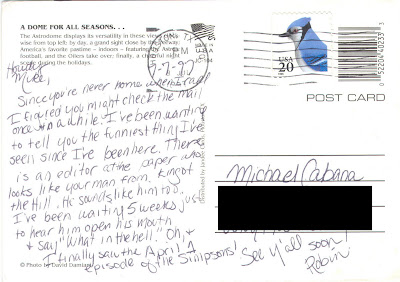 A DOME FOR ALL SEASONS. . .
The Astrodome displays its versatility in these views
wise from top left: by day, a grand sight close by the freeway;
America's favorite pastime – indoors – featuring the Astros;
football, and the Oilers take over; finally, a cheerful sight
during the holidays.
PM
USA
20
POST CARD
Mike,
Since you're never home when I call
I figured you might check the mail
once in a while. I've been wanting
to tell you the funniest thing I've
seen since I've been here. There
is an editor at the paper who
looks like your man from King of
the Hill. He sounds like him too
I've been waiting 5 weeks just
to hear him open his mouth
& say "What in the hell." Oh, &
I finally saw the April 1
episode of the Simpsons! See y'all soon!
Robin
Michael Cabana
© Photo by David